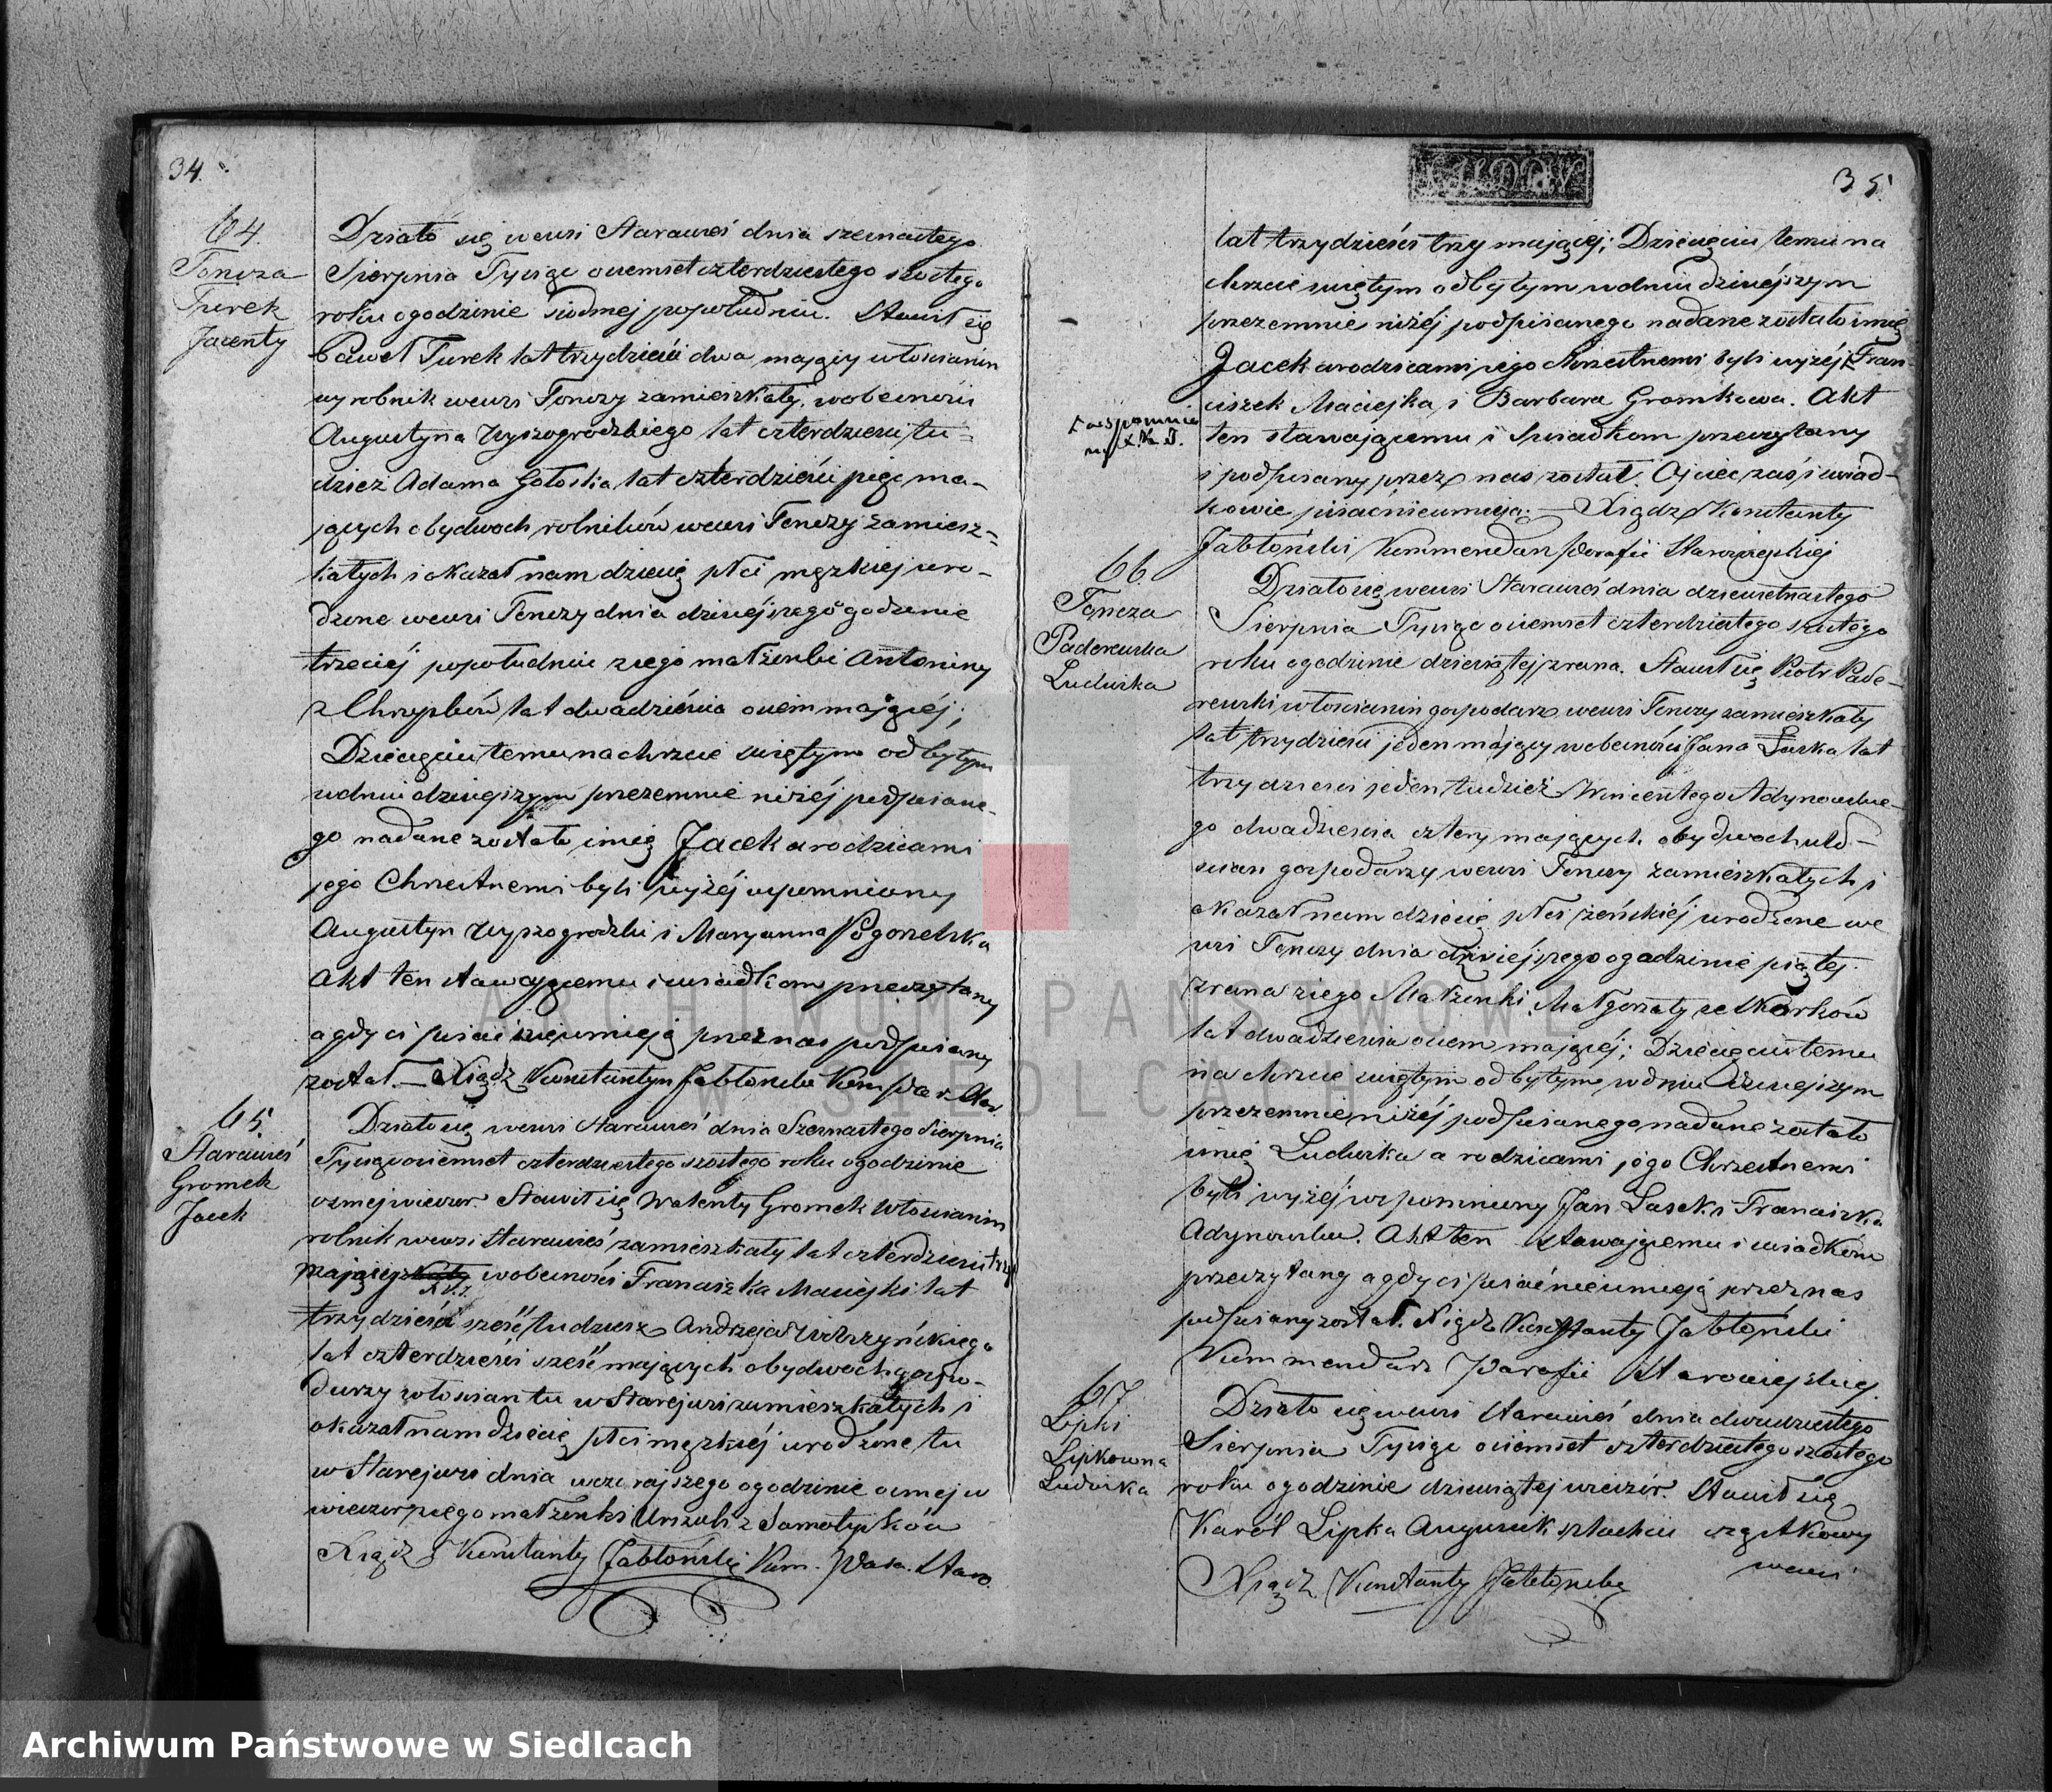 34.
64.
Toncza
Turek
Jacenty
Działo się wewsi Starawieś dnia szesnastego
Sierpnia Tysiąc osiemset czterdziestego szostego
roku ogodzinie siodmej popołudniu. Stawił się
Paweł Turek lat trzydzieści dwa maiący włościanin
wyrobnik wewsi Tonczy zamieszkały, wobecności
Augustyna Wyszogrodzkiego lat czterdzieści tu=
dzież Adama Gołoska lat czterdzieści pięć ma-
jących obydwoch rolników wewsi Tonczy zamiesz-
kałych i okazał nam dziecię płci męzkiej uro-
dzone wewsi Tonczy dnia dzisiejszego ogodzinie
trzeciej popołudniu zjego małżonki Antoniny
z Chrupków lat dwadzieścia osiem mającej;
Dziecięciu temu na chrzcie świętym odbytym
wdniu dzisiejszym przezemnie niżéj podpisane-
go nadane zostało imię Jacek a rodzicami
jego Chrzestnemi byli wyżéj wspomniony
Augustyn Wyszogrodzki i Maryanna Pogorzelska
Akt ten stawającemu i świadkom przeczytany
a gdy ci pisać nieumieją przez nas podpisany
został. — Xiądz Konstantyn Jabłoński Kom Par. Star.
65.
Starawieś
Gromek
Jacek
Działo się wewsi Starawieś dnia Szesnastego Sierpnia
Tysiąc osiemset czterdziestego szostego roku ogodzinie
osmej wieczor. Stawił się Walenty Gromek Włościanin
rolnik wewsi Starawieś zamieszkały lat czterdzieści trzy
mający wobecności Franciszka Maciejki lat
trzydzieści sześć tudziesz Andrzeja
lat czterdzieści sześć mających obydwoch gospo-
darzy włościan tu w Starejwsi zamieszkałych i
okazał nam dziecię płci męzkiéj urodzone tu
w Starejwsi dnia wczorajszego ogodzinie osmej w
wieczor zjego małżonki Urszuli z Samotyków
Xiądz Konstanty Jabłoński Kom. Para. Staro.
35.
lat trzydzieści trzy mającéj; Dziecięciu temu na
chrzcie świętym odbytym wdniu dzisiéjszym
przezemnie niżéj podpisanego nadane zostało imię
Jacek arodzicami jego Chrzestnemi byli wyżéj Fran-
ciszek Maciejka i Barbara Gromkowa. Akt
wspomnie
ny X. K. J.
ten stawającemu i świadkom przeczytany
i podpisany przez nas został. Ojciec zaś i świad-
kowie pisać nieumieją. — Xiądz Konstanty
Jabłoński Kommendarz Parafii Starowiejskiej
66.
Toncza
Paderewska
Ludwika
Działo się wewsi Starawieś dnia dziewietnastego
Sierpnia Tysiąc osiemset czterdziestego szostego
roku ogodzinie dziewiątéj zrana. Stawił się Piotr Pade-
rewski włościanin gospodarz wewsi Tonczy zamieszkały
lat trzydzieści jeden mający wobecności Jana Laska lat
trzydzieści jeden tudzież Wincentego Adynowskie-
go dwadzieścia cztery mających obydwoch wło-
scian gospodarzy wewsi Tonczy zamieszkałych i
okazał nam dziecię płci żeńskiéj urodzone we
wsi Tonczy dnia dzisiejszego ogodzinie piątej
zrana zjego Małzonki Małgorzaty ze
lat dwadzieścia osiem mającéj; Dziecięciu temu
na chrzcie świętym odbytym wdniu dzisiejszym
przezemnie niżéj podpisanego nadane zostało
imię Ludwika a rodzicami jégo Chrzestnemi
byli wyżéj wspomniony Jan Lasek i Franciszka
Adynowska. Akt ten stawającemu i świadkom
przeczytany a gdy ci pisać nieumieją przez nas
podpisany został. Xiądz Konstanty Jabłoński
Kommendarz Parafii Starowiejskiej
67
Lipki
Lipkowna
Ludwika
Działo się wewsi Starawieś dnia dwudziestego
Sierpnia Tysiąc osiemset czterdziestego szostego
roku ogodzinie dziewiątej wieczór. Stawił się
Karól Lipka szlachcic cząstkowy
wewsi
Xiądz Konstanty Jabłoński
ARCHIWUM PAŃSTWOWE
W SIEDLCACH
Archiwum Państwowe w Siedlcach